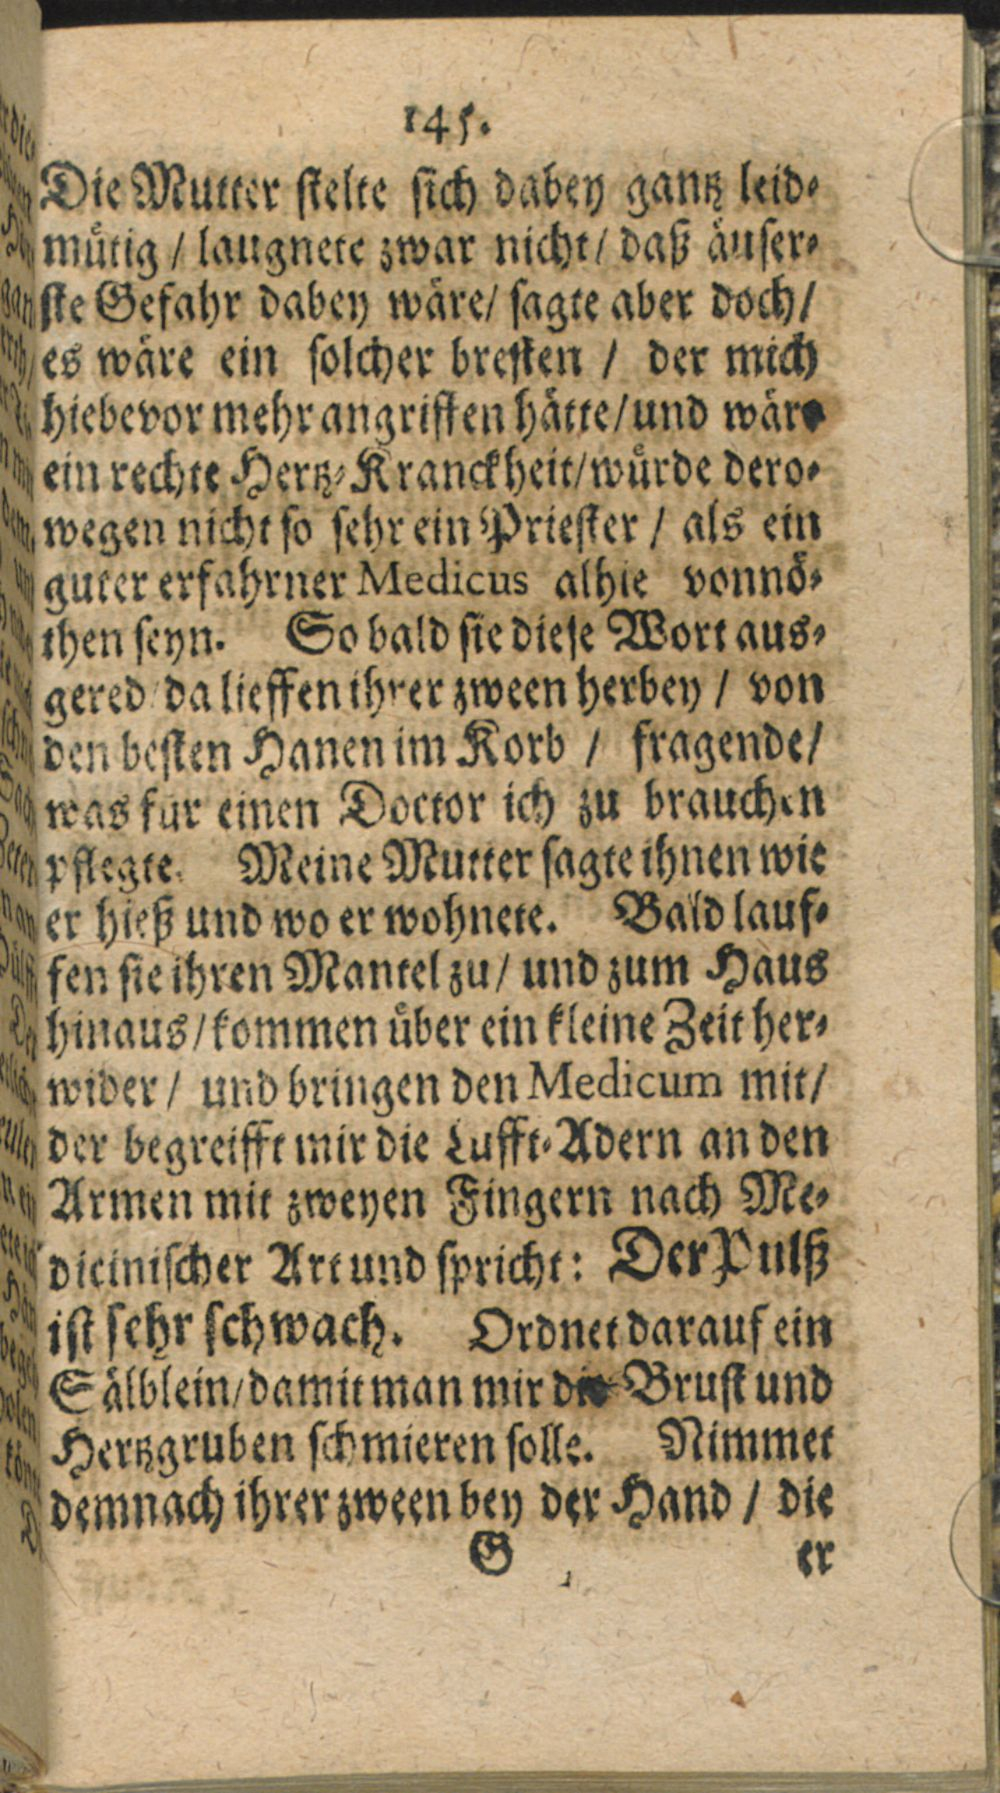 145.
Die Mutter stelte sich dabey gantz leid-
mütig / laugnete zwar nicht / daß äuser-
ste Gefahr dabey wäre / sagte aber doch /
es wäre ein solcher bresten / der mich
hiebevor mehr angriffen hätte / und wäre
ein rechte Hertz-Kranckheit / würde dero-
wegen nicht so sehr ein Priester / als ein
guter erfahrner Medicus alhie vonnö-
then seyn. So bald sie diese Wort aus-
gered / da lieffen ihrer zween herbey / von
den besten Hanen im Korb / fragende /
was für einen Doctor ich zu brauchen
pflegte. Meine Mutter sagte ihnen wie
er hieß und wo er wohnete. Bald lauf-
fen sie ihren Mantel zu / und zum Haus
hinaus / kommen über ein kleine Zeit her-
wider / und bringen den Medicum mit /
der begreifft mir die Lufft-Adern an den
Armen mit zweyen Fingern nach Me-
dicinischer Art und spricht: Der Pulß
ist sehr schwach. Ordnet darauf ein
Sälblein / damit man mir die Brust und
Hertzgruben schmieren solle. Nimmet
demnach ihrer zween bey der Hand / die
G er